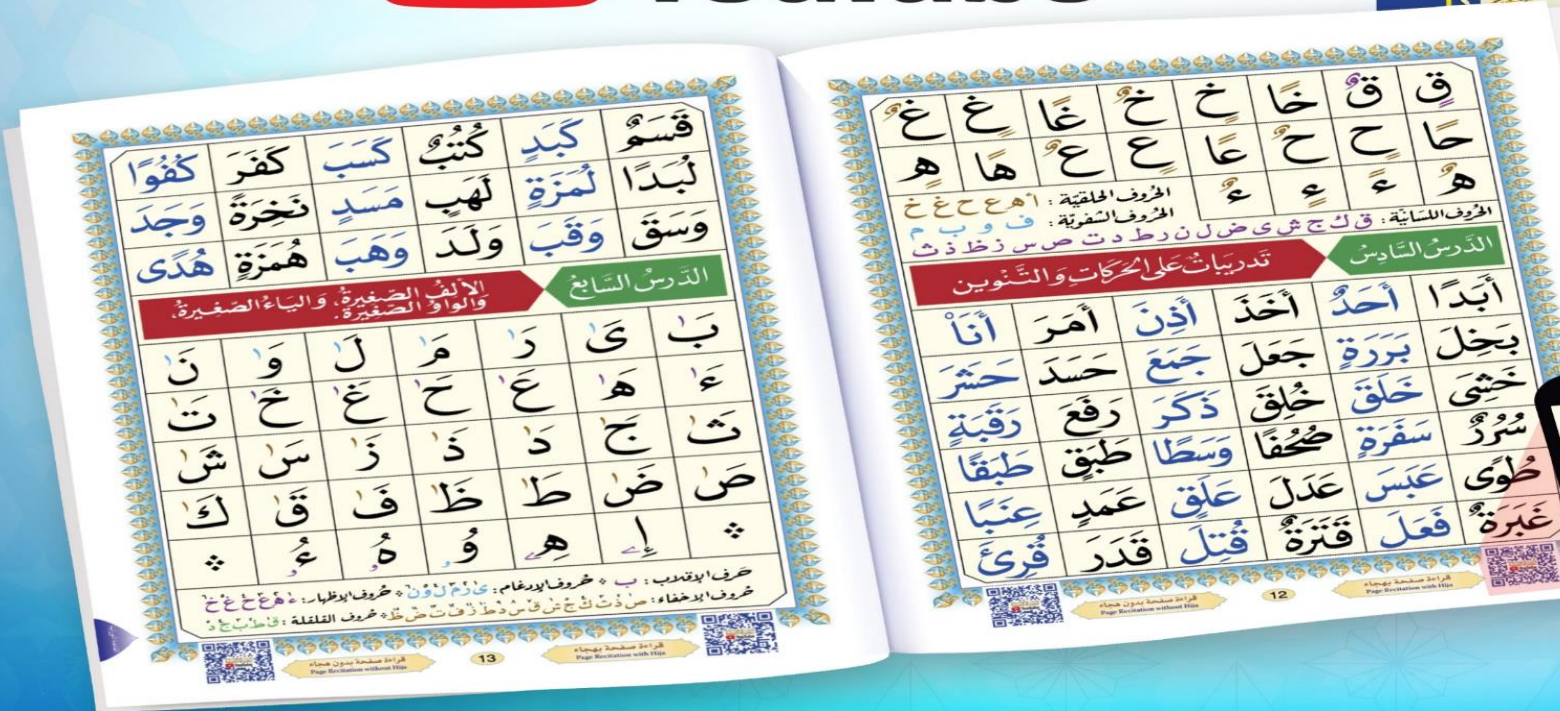 YouTube
قٍ قٌ خًا خٍ خٌ غًا غٍ غٌ
حًا حٍ حٌ عًا عٍ عٌ هًا هٍ
هٌ ءً ءٍ ءٌ
الحُروف الحلقيّة : أ ه ع ح غ خ
الحُروف الشفويّة : ف و ب م
الحُروف اللسانيّة : ق ك ج ش ى ض ل ن ر ط د ت ص س ز ظ ذ ث
الدَّرسُ السَّادِسُ
تَدرِيبَاتٌ عَلَى الحَرَكَاتِ وَالتَّنْوِين
أَبَدًا أَحَدٌ أَخَذَ أَذِنَ أَمَرَ أَنَا۠
بَخِلَ بَرَرَةٍ جَعَلَ جَمَعَ حَسَدَ حَشَرَ
خَشِىَ خَلَقَ خُلِقَ ذَكَرَ رَفَعَ رَقَبَةٍ
سُرُرٌ سَفَرَةٍ صُحُفًا وَسَطًا طَبَقٍ طَبَقًا
طُوًى عَبَسَ عَدَلَ عَلَقٍ عَمَدٍ عِنَبًا
غَبَرَةٌ فَعَلَ قَتَرَةٌ قُتِلَ قَدَرَ قُرِئَ
قراءة صفحة بهجاء
Page Recitation with Hija
12
قراءة صفحة بدون هجاء
Page Recitation without Hija
قَسَمٌ كَبَدٍ كُتُبٌ كَسَبَ كَفَرَ كُفُوًا
لُبَدًا لُمَزَةٍ لَهَبٍ مَسَدٍ نَخِرَةً وَجَدَ
وَسَقَ وَقَبَ وَلَدَ وَهَبَ هُمَزَةٍ هُدًى
الدَّرسُ السَّابِعُ
الأَلِفُ الصَّغِيرَةُ، وَاليَاءُ الصَّغِيرَةُ،
وَالوَاوُ الصَّغِيرَةُ.
بَٰ ىَٰ رَٰ مَٰ لَٰ وَٰ نَٰ
ءَٰ هَٰ عَٰ حَٰ غَٰ خَٰ تَٰ
ثَٰ جَٰ دَٰ ذَٰ زَٰ سَٰ شَٰ
صَٰ ضَٰ طَٰ ظَٰ فَٰ قَٰ كَٰ
إِۦ هِۦ وُۥ هُۥ ءُۥ
حَرف الإقلاب : ب ﴿ حُروف الإدغام : ى ر م ل و ن ﴿ حُروف الإظهار : ء ه ع ح غ خ
حُروف الإخفاء : ص ذ ث ك ج ش ق س د ط ز ف ت ض ظ ﴿ حُروف القلقلة : ق ط ب ج د
قراءة صفحة بهجاء
Page Recitation with Hija
13
قراءة صفحة بدون هجاء
Page Recitation without Hija